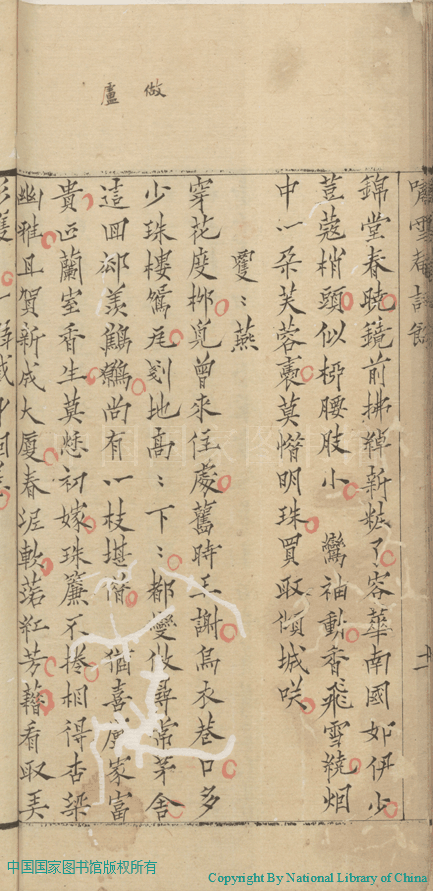 倣
盧
錦堂春曉鏡前拂綽新粧了容華南國如伊少
荳蔻梢頭似栁腰肢小　鸞袖動香飛雪繞烟
中一朶芙蓉裊莫惜明珠買取傾城咲
雙〻燕
穿花度栁兒曾來住處舊時王謝烏衣巷口多
少珠樓鴛瓦剗地高〻下〻都變做尋常茅舍
這回卻羡鷦鷯尚有一枝堪借　猶喜盧家富
貴正蘭室香生莫愁初嫁珠簾不捲相得杏梁
幽雅且賀新成大厦春泥軟落紅芳藉看取美
中国国家图书馆版权所有
Copyright By National Library of China